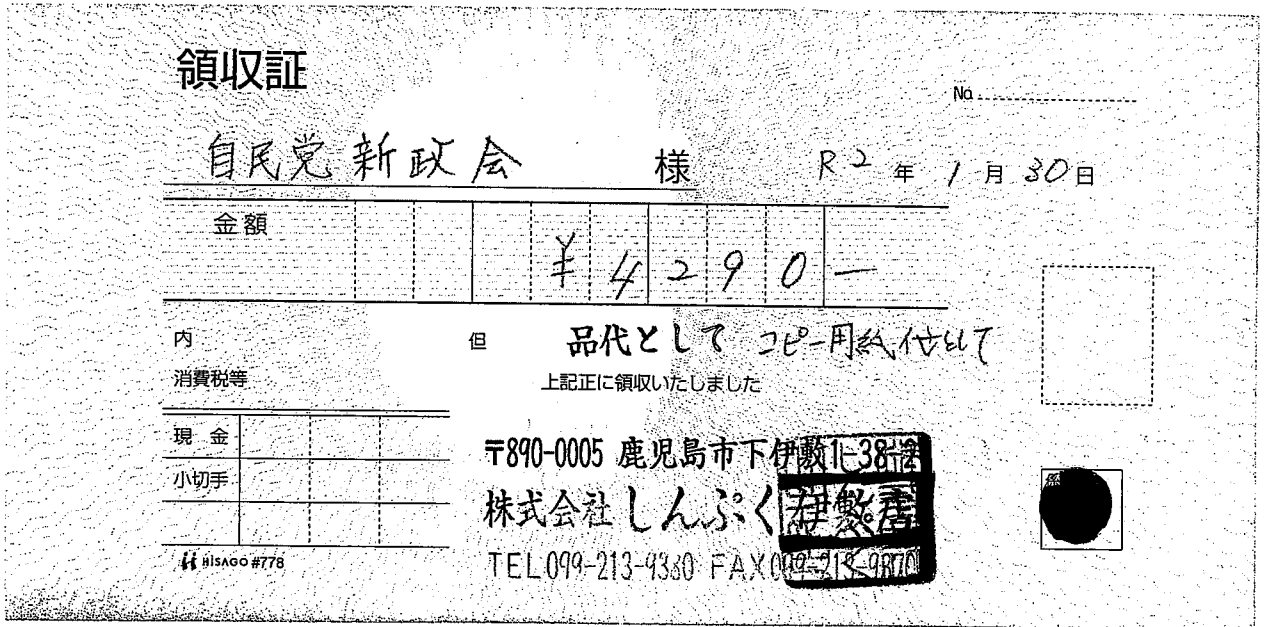 領収証
No.
自民党新政会 様 R2年1月30日
金額 ¥4290—
内 但 品代として コピー用紙代として
消費税等 上記正に領収いたしました
現金
小切手
〒890-0005 鹿児島市下伊敷1-38-2
株式会社しんぷく伊敷店
TEL099-213-9380 FAX
HISAGO #778